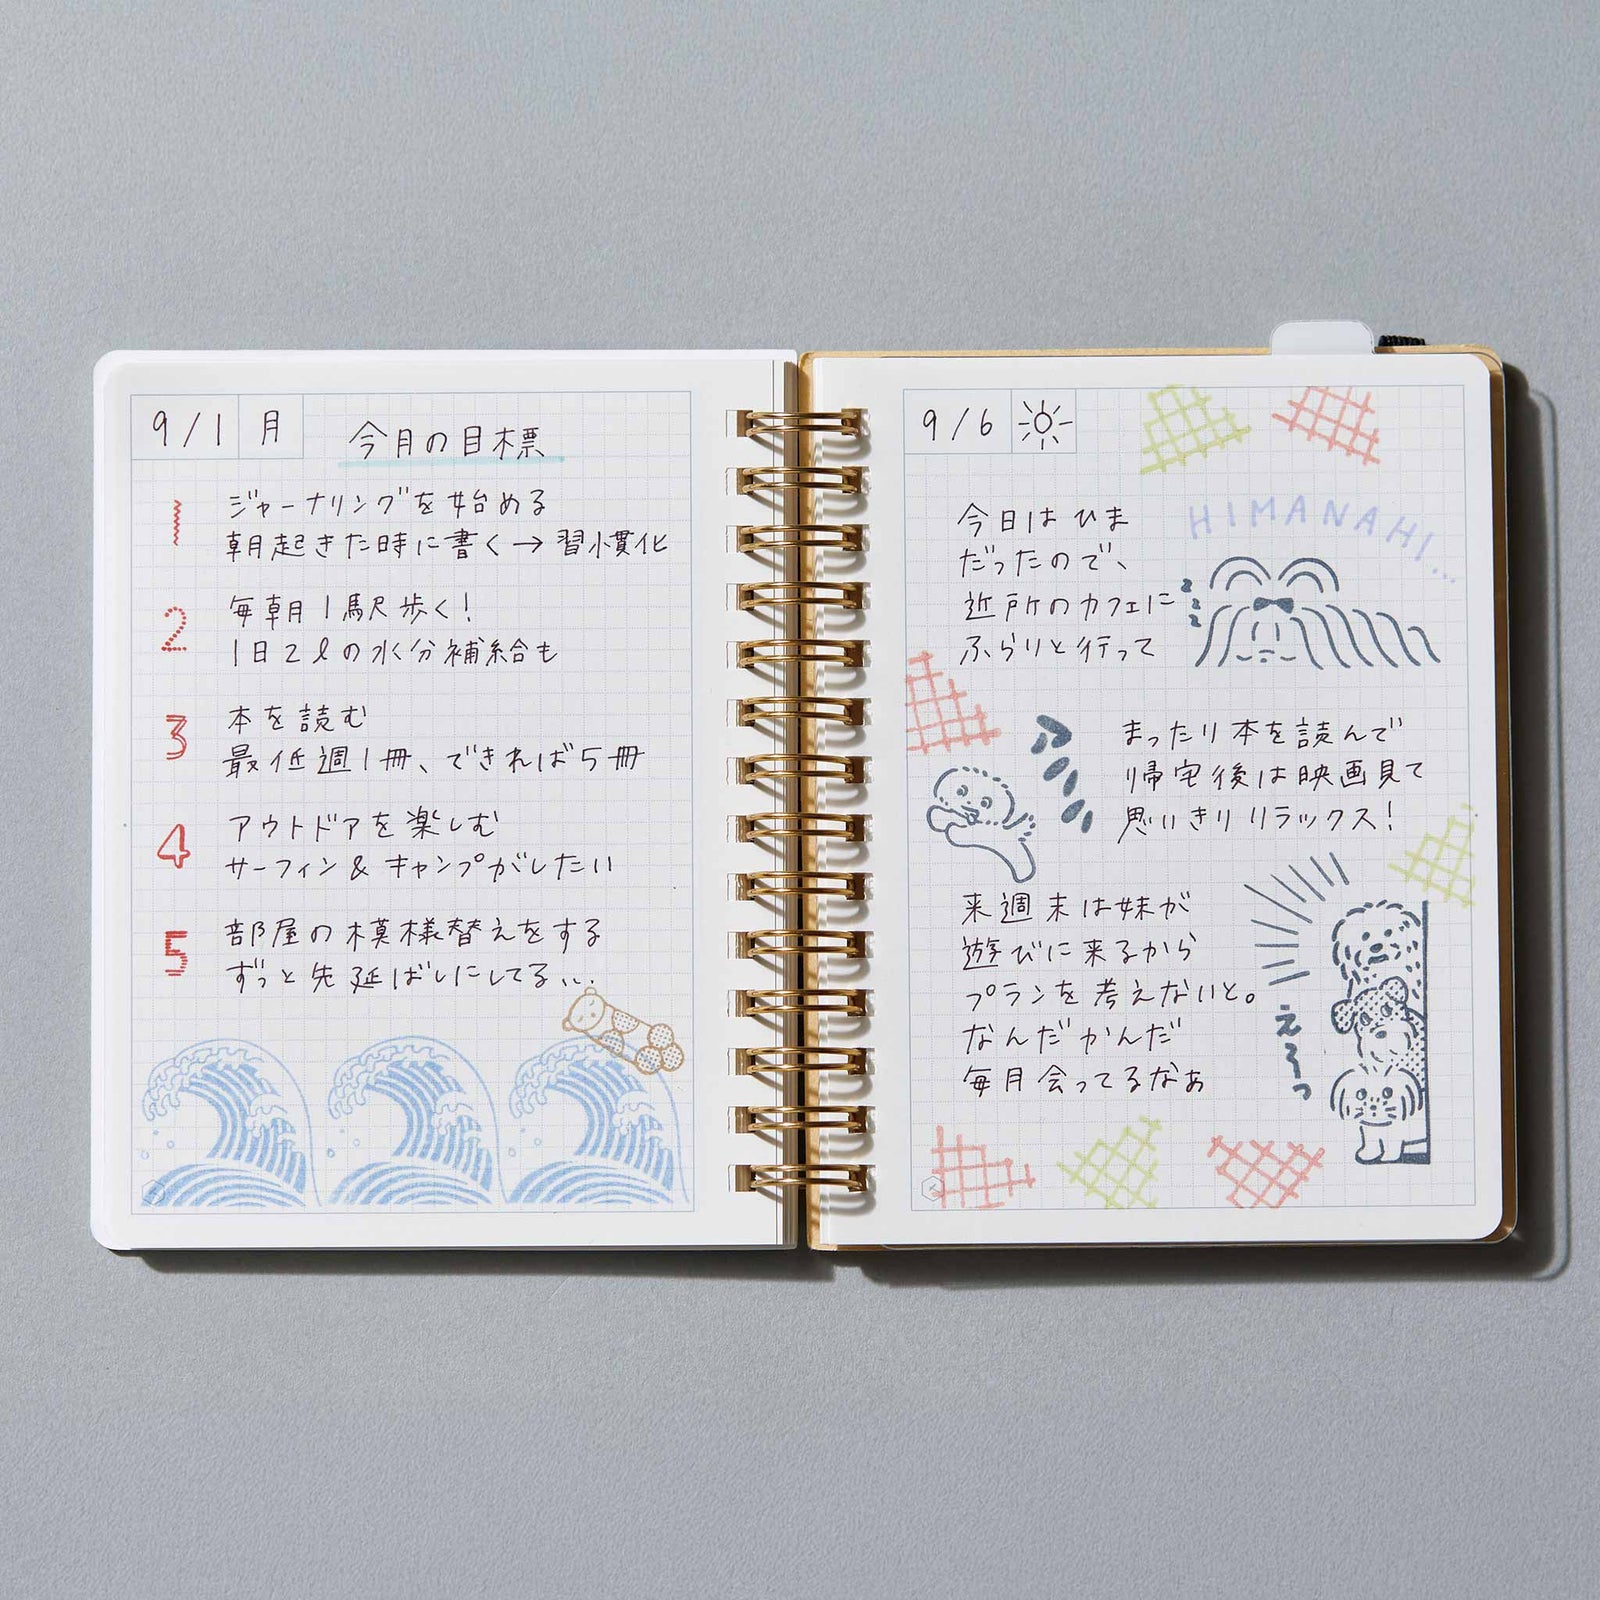 9/1 月
今月の目標
1
ジャーナリングを始める
朝起きた時に書く→習慣化
2
毎朝1駅歩く!
1日2ℓの水分補給も
3
本を読む
最低週1冊、できれば5冊
4
アウトドアを楽しむ
サーフィン&キャンプがしたい
5
部屋の模様替えをする
ずっと先延ばしにしてる...
9/6
HIMANAHI...
今日はひま
だったので、
近所のカフェに
ふらりと行って
zzz
まったり本を読んで
帰宅後は映画見て
思いきりリラックス!
来週末は妹が
遊びに来るから
プランを考えないと。
なんだかんだ
毎月会ってるなぁ
え〜っ